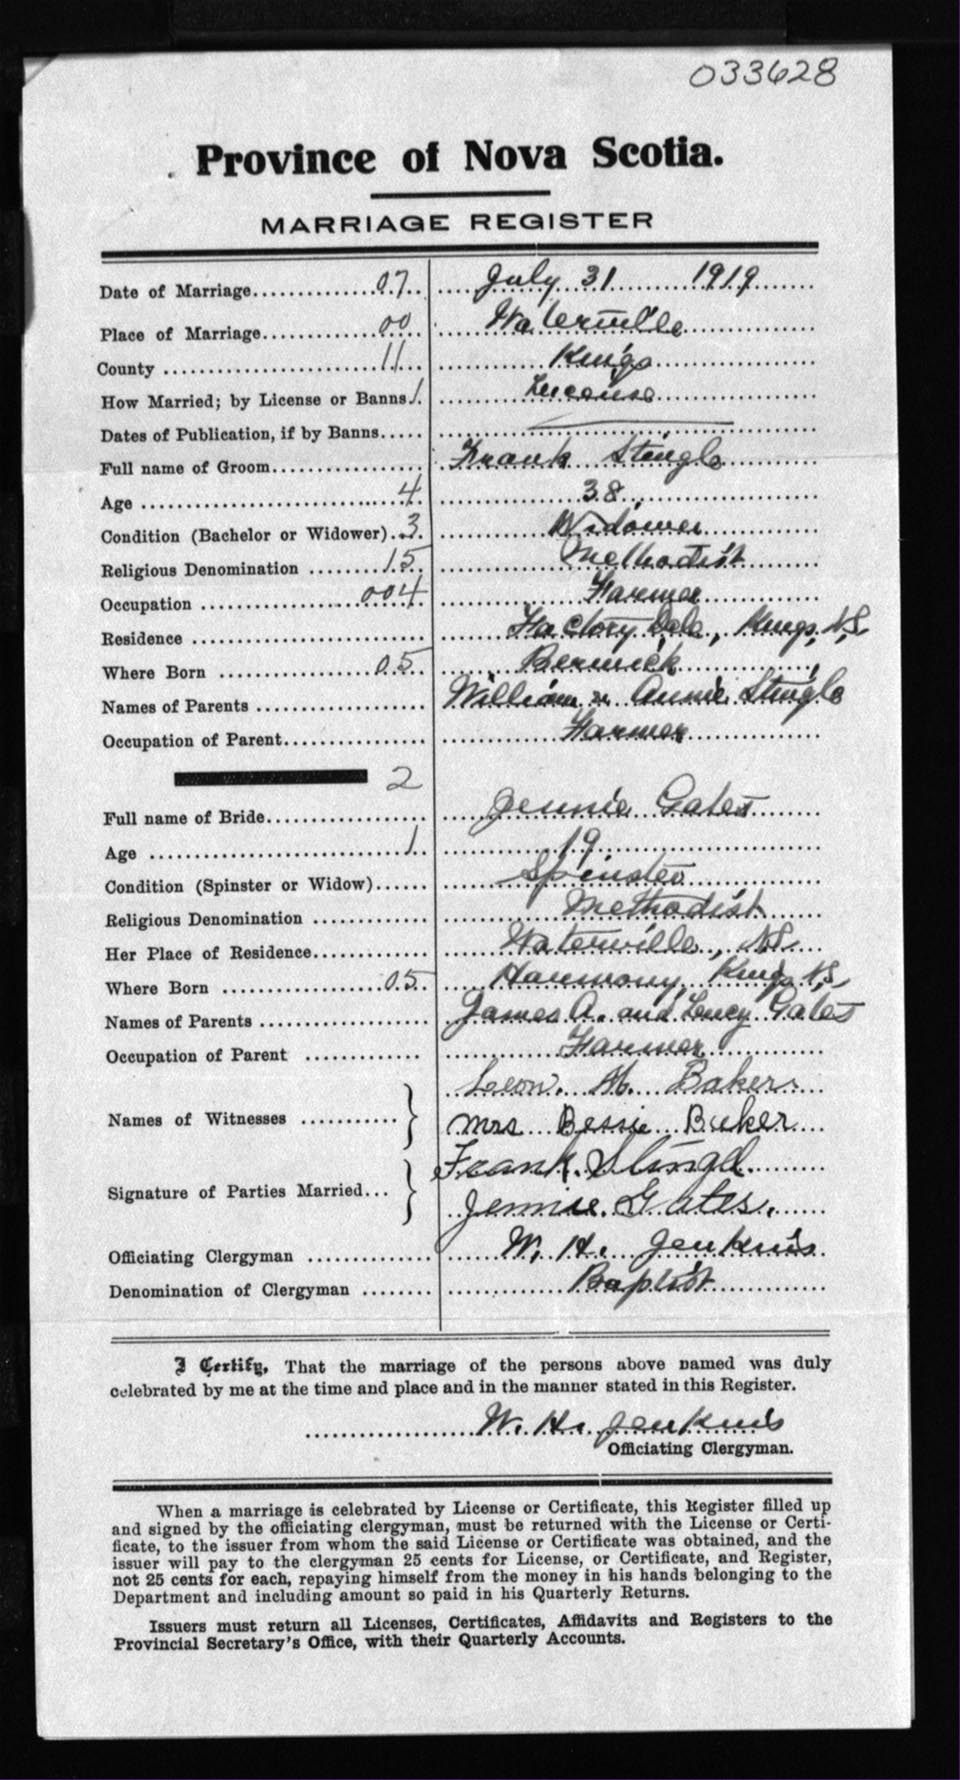 033628
Province of Nova Scotia.
MARRIAGE REGISTER
Date of Marriage 07 July 31 1919
Place of Marriage 00 Waterville
County 11 Kings
How Married; by License or Banns 1 License
Dates of Publication, if by Banns
Full name of Groom Frank Stingle
Age 4 38
Condition (Bachelor or Widower) 3 Widower
Religious Denomination 15 Methodist
Occupation 004 Farmer
Residence Factory Dale, Kings, N.S.
Where Born 05 Berwick
Names of Parents William & Annie Stingle
Occupation of Parent Farmer
2
Full name of Bride Jennie Gates
Age 1 19
Condition (Spinster or Widow) Spinster
Religious Denomination Methodist
Her Place of Residence Waterville, N.S.
Where Born 05 Harmony, Kings, N.S.
Names of Parents James A. and Lucy Gates
Occupation of Parent Farmer
Leon. M. Baker
Names of Witnesses
Mrs Bessie Baker
Frank
Signature of Parties Married
Jennie Gates.
Officiating Clergyman W. H. Jenkins
Denomination of Clergyman Baptist
I Certify, That the marriage of the persons above named was duly
celebrated by me at the time and place and in the manner stated in this Register.
W. H. Jenkins
Officiating Clergyman.
When a marriage is celebrated by License or Certificate, this Register filled up
and signed by the officiating clergyman, must be returned with the License or Certi-
ficate, to the issuer from whom the said License or Certificate was obtained, and the
issuer will pay to the clergyman 25 cents for License, or Certificate, and Register,
not 25 cents for each, repaying himself from the money in his hands belonging to the
Department and including amount so paid in his Quarterly Returns.
Issuers must return all Licenses, Certificates, Affidavits and Registers to the
Provincial Secretary's Office, with their Quarterly Accounts.